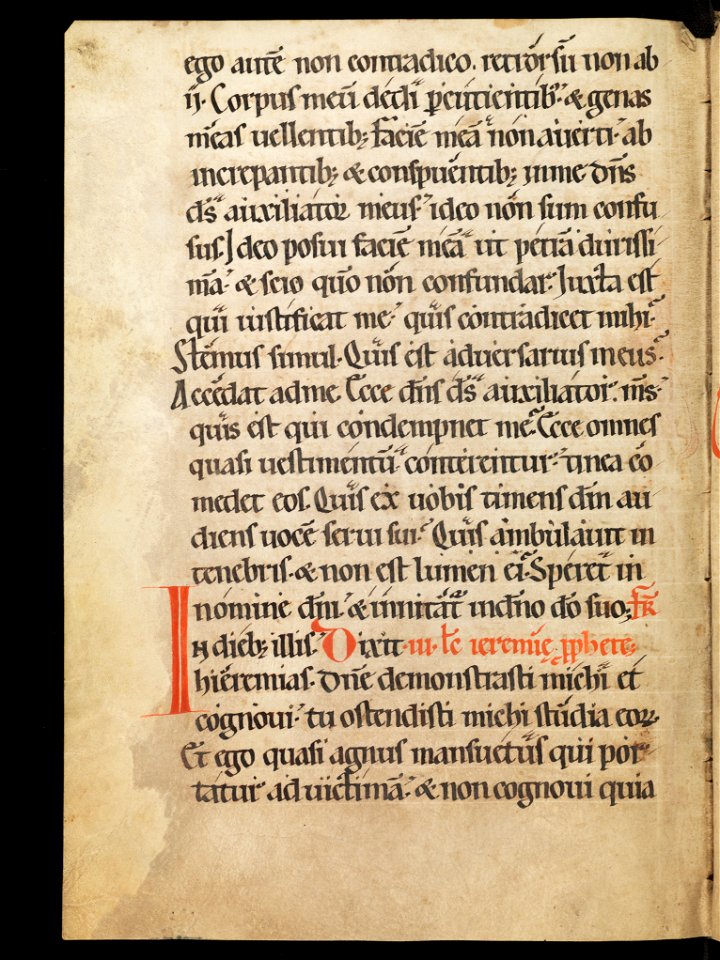 ego autē non contradico. retrorsū non ab
ii. Corpus meū dedi ꝑcutientibꝰ. & genas
meas uellentibꝫ faciē meā non auerti. ab
increpantibꝫ & conspuentibꝫ in me dn̄s
ds̄ auxiliator meus. ideo non sum confu
sus. Ideo posui faciē meā ut petrā durissi
mā. & scio quo non confundar. Iuxta est
qui iustificat me. quis contradicet mihi.
Stemus simul. Quis est aduersarius meus.
Accedat ad me. Ecce dn̄s ds̄ auxiliator. ms̄.
quis est qui condempnet me. Ecce omnes
quasi uestimentū conterentur. tinea co
medet eos. Quis ex uobis timens dn̄m au
diens uocē serui sui. Quis ambulauit in
tenebris. & non est lumen ei. Speret in
nomine dn̄i. & innitat̄ in dn̄o dō suo; fr̄
In diebꝫ illis. Dixit .iii. lc̄ ieremię ꝓphete;
hieremias. Dn̄e demonstrasti michi et
cognoui. tu ostendisti michi studia eoꝝ.
Et ego quasi agnus mansuetus qui por
tatur ad uictimā. & non cognoui quia